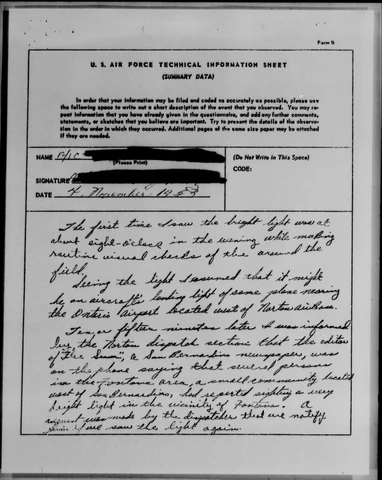 Form B
U. S. AIR FORCE TECHNICAL INFORMATION SHEET
(SUMMARY DATA)
In order that your information may be filed and coded as accurately as possible, please use
the following space to write out a short description of the event that you observed. You may re-
peat information that you have already given in the questionnaire, and add any further comments,
statements, or sketches that you believe are important. Try to present the details of the observa-
tion in the order in which they occurred. Additional pages of the same size paper may be attached
if they are needed.
NAME
(Please Print)
SIGNATURE
DATE 4 November 1953
(Do Not Write in This Space)
CODE:
The first time I saw the bright light was at
about eight-o'clock in the evening while making
routine visual checks of the around the
field.
Seeing the light I assumed that it might
be an aircrafts landing light of some plane nearing
the Ontario Airport located west of Norton Airbase.
Ten or fifteen minutes later I was informed
by the Norton dispatch section that the editor
of "The Sun", a San Bernardino newspaper, was
on the phone saying that several persons
in the Fontana area, a small community located
west of San Bernardino, had reported sighting a very
bright light in the vicinity of Fontana. A
request was made by the dispatcher that we notify
if we saw the light again.